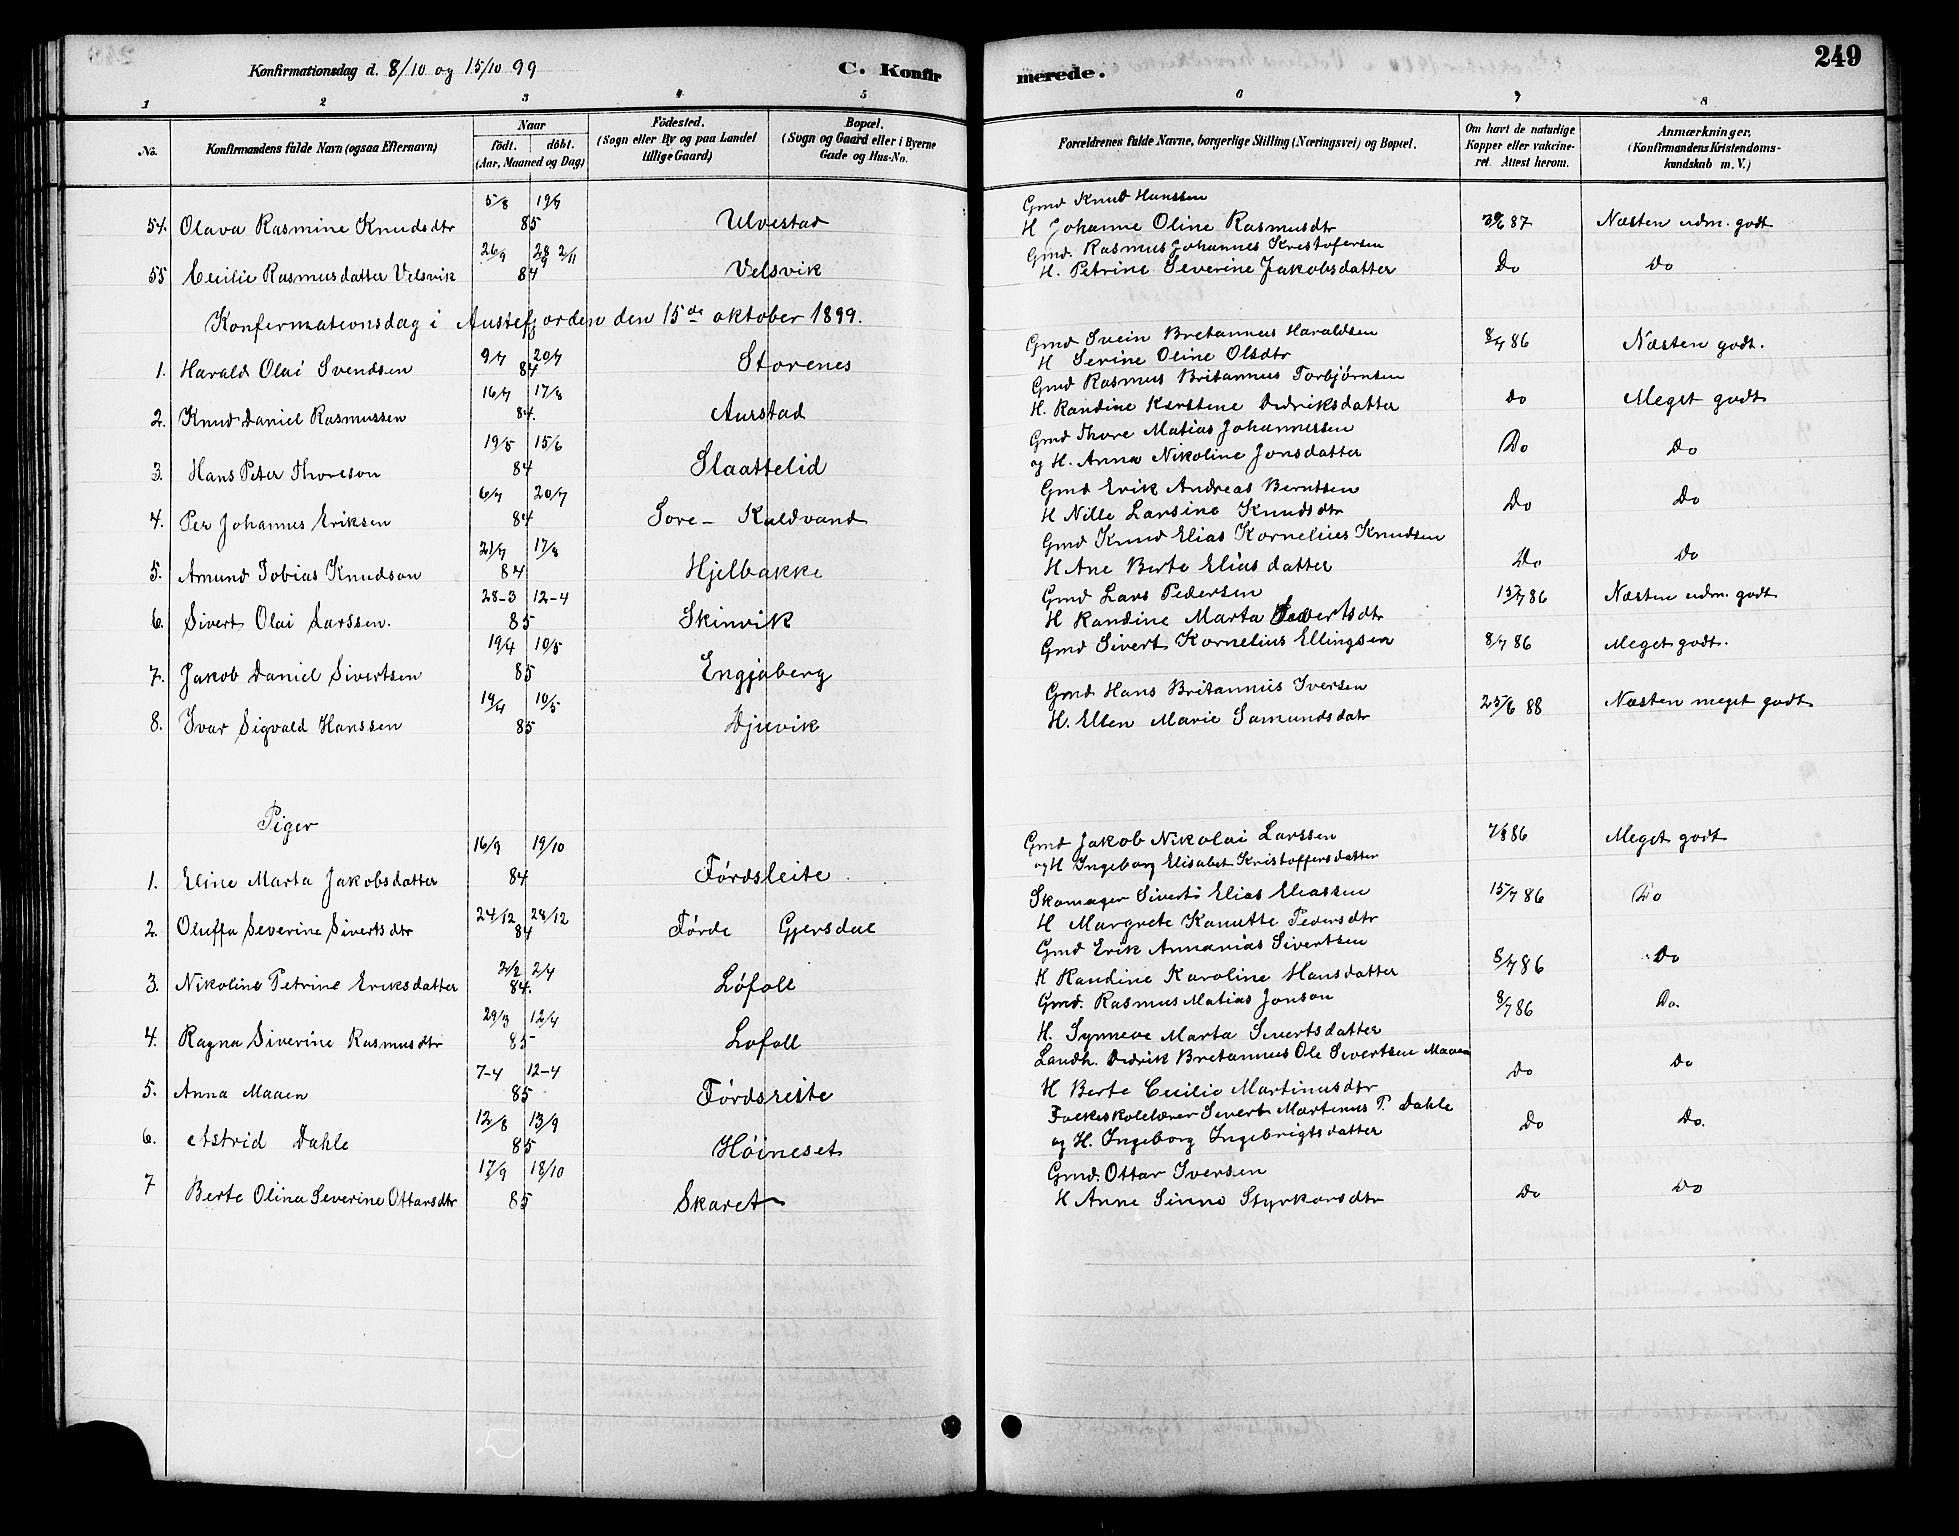 Konfirmationsdag d. 8/10 og 15/10 99
C. Konfirmerede.
249
1 2 3 4 5 6 7 8
No. | Konfirmandens fulde Navn (ogsaa Efternavn) | Naar født. døbt. (Aar, Maaned og Dag) | Fødested. (Sogn eller By og paa Landet tillige Gaard) | Bopæl. (Sogn og Gaard eller i Byerne Gade og Hus-No. | Forældrenes fulde Navne, borgerlige Stilling (Næringsvei) og Bopæl. | Om havt de naturlige Kopper eller vakcineret. Attest herom. | Anmærkninger. (Konfirmandens Kristendomskundskab m. V.)
5/8 19/9 Gmd Knud Hanssen
54. Olava Rasmine Knudsdtr 85 Ulvestad H Johanne Oline Rasmusdtr 87 Næsten udm. godt
26/9 28/9 2/11 Gmd. Rasmus Johannes Krestofersen
55 Cecilie Rasmusdatter Velsvik 84 Velsvik H. Petrine Severine Jakobsdatter Do Do
Konfermationsdag i Austefjorden den 15de oktober 1899.
9/7 20/7 Gmd Svein Bretannus Haraldsen 8/7 86 Næsten godt.
1. Harald Olai Svendsen 84 Storenes H Serine Oline Olsdtr
16/7 17/8 Gmd Rasmus Britannus Torbjørnsen
2. Knud Daniel Rasmussen 84. Aurstad H. Randine Karstene Dedriksdatter Do Meget godt
19/5 15/6 Gmd Thore Matias Johannessen
3. Hans Peter Thoreson 84 Slaattelid og H. Anna Nikoline Jonsdatter Do Do
6/7 20/7 Gmd Erik Andreas Berntsen
4. Per Johannes Eriksen 84 Sore- Kaldvand H Nille Larsine Knudsdtr Do Do
21/7 17/8 Gmd Knud Elias Kornelius Knudsen
5. Amund Tobias Knudson 84 Hjelbakke H Ane Berte Eliasdatter Do Do
28-3 12-4 Gmd Lars Pedersen 15/7 86 Næsten udm. godt
6. Sivert Olai Larssen. 85 Skinvik H Randine Marta Severtsdtr
19/4 10/5 Gmd Sivert Kornelius Ellingsen 8/7 86 Meget godt.
7. Jakob Daniel Sivertsen 85 Engjaberg
19/4 10/5 Gmd Hans Britannius Iversen 25/6 88 Næsten meget godt
8. Ivar Sigvald Hanssen 85 Djuvik H. Ellen Marie Samundsdatr
Piger
16/9 19/10 Gmd Jakob Nikolai Larssen 7/8 86 Meget godt
1. Eline Marta Jakobsdatter 84 Førdsleite. og H Ingeborg Elisabet Kristoffersdatter
24/12 28/12 Skomager Siverts Elias Eliassen 15/7 86 Do
2. Oluffa Severine Sivertsdtr 84 Førde Gjersdal H Margrete Kanutte Pedersdtr
2/2 2/4 Gmd Erik Annanias Sivertsen
3. Nikoline Petrine Eriksdatter 84. Løfoll H Randine Karoline Hansdatter 8/7 86 Do
29/3 12/4 Gmd. Rasmus Matias Jonson 8/7 86 Do.
4. Ragna Siverine Rasmusdtr 85 Lofoll H. Synneve Marta Sivertsdatter
7-4 12-4 Landh. Didrik Bretannus Ole Sivertsen Maaen
5. Anna Maaen 85 Førdsleite H Berte Cecilie Martinusdtr Do Do
12/8 13/9 Folkeskolelærer Sivert Martinus P. Dahle
6. Astrid Dahle 85 Høineset og H. Ingeborg Ingebrigtsdatter Do Do.
17/9 18/10 Gmd. Ottar Iversen
7 Berte Olina Severine Ottarsdtr 85 Skaret H Anne Sinno Styrkarsdtr Do Do